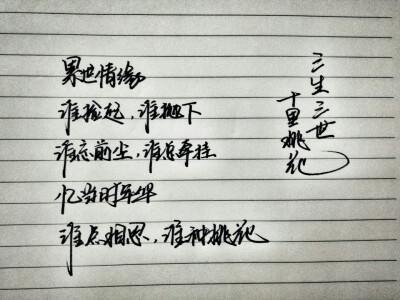 累世情缘
谁捡起，谁抛下
谁忘前尘，谁总牵挂
忆当时年华
谁点相思，谁种桃花
三生三世
十里桃花